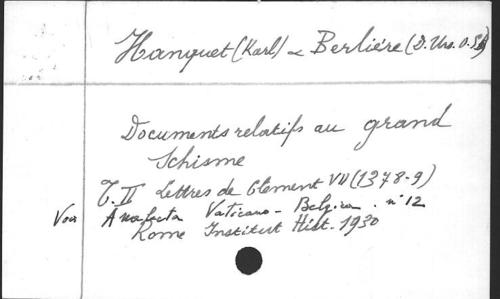 Hanquet (Karl) & Berlière (D. Urs. O.S.B)
Documents relatifs au grand
Schisme
T. II Lettres de Clement VII (1378-9)
Voir Analecta Vaticano-Belgica. n° 12
Rome Institut Hist. 1930